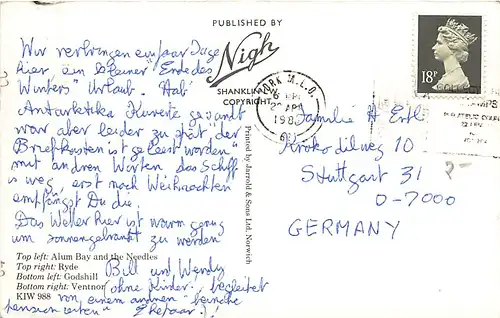 PUBLISHED BY
Nigh
SHANKLIN
COPYRIGHT
Wir verbringen ein paar Tage
hier ein "kleiner" Ende des
Winters" Urlaub. Hab'
Antarktika Kuverte gesandt
war aber leider zu spät, der
Briefkasten ist geleert worden"
mit andren Worten das Schiff
is weg, erst nach Weihnachten
empfängst Du die.
Das Wetter hier ist warm genug
um sonnengebrannt zu werden
Top left: Alum Bay and the Needles
Top right: Ryde
Bottom left: Godshill
Bottom right: Ventnor
KIW 988
Bill und Wendy
(ohne Kinder, begleitet
von einem andren "beinahe
pensionierten" Ehepaar.)!
Printed by Jarrold & Sons Ltd. Norwich
18P
YORK M.L.O.
198
Familie H Ertl
Krokodilweg 10
Stuttgart 31
D-7000
GERMANY